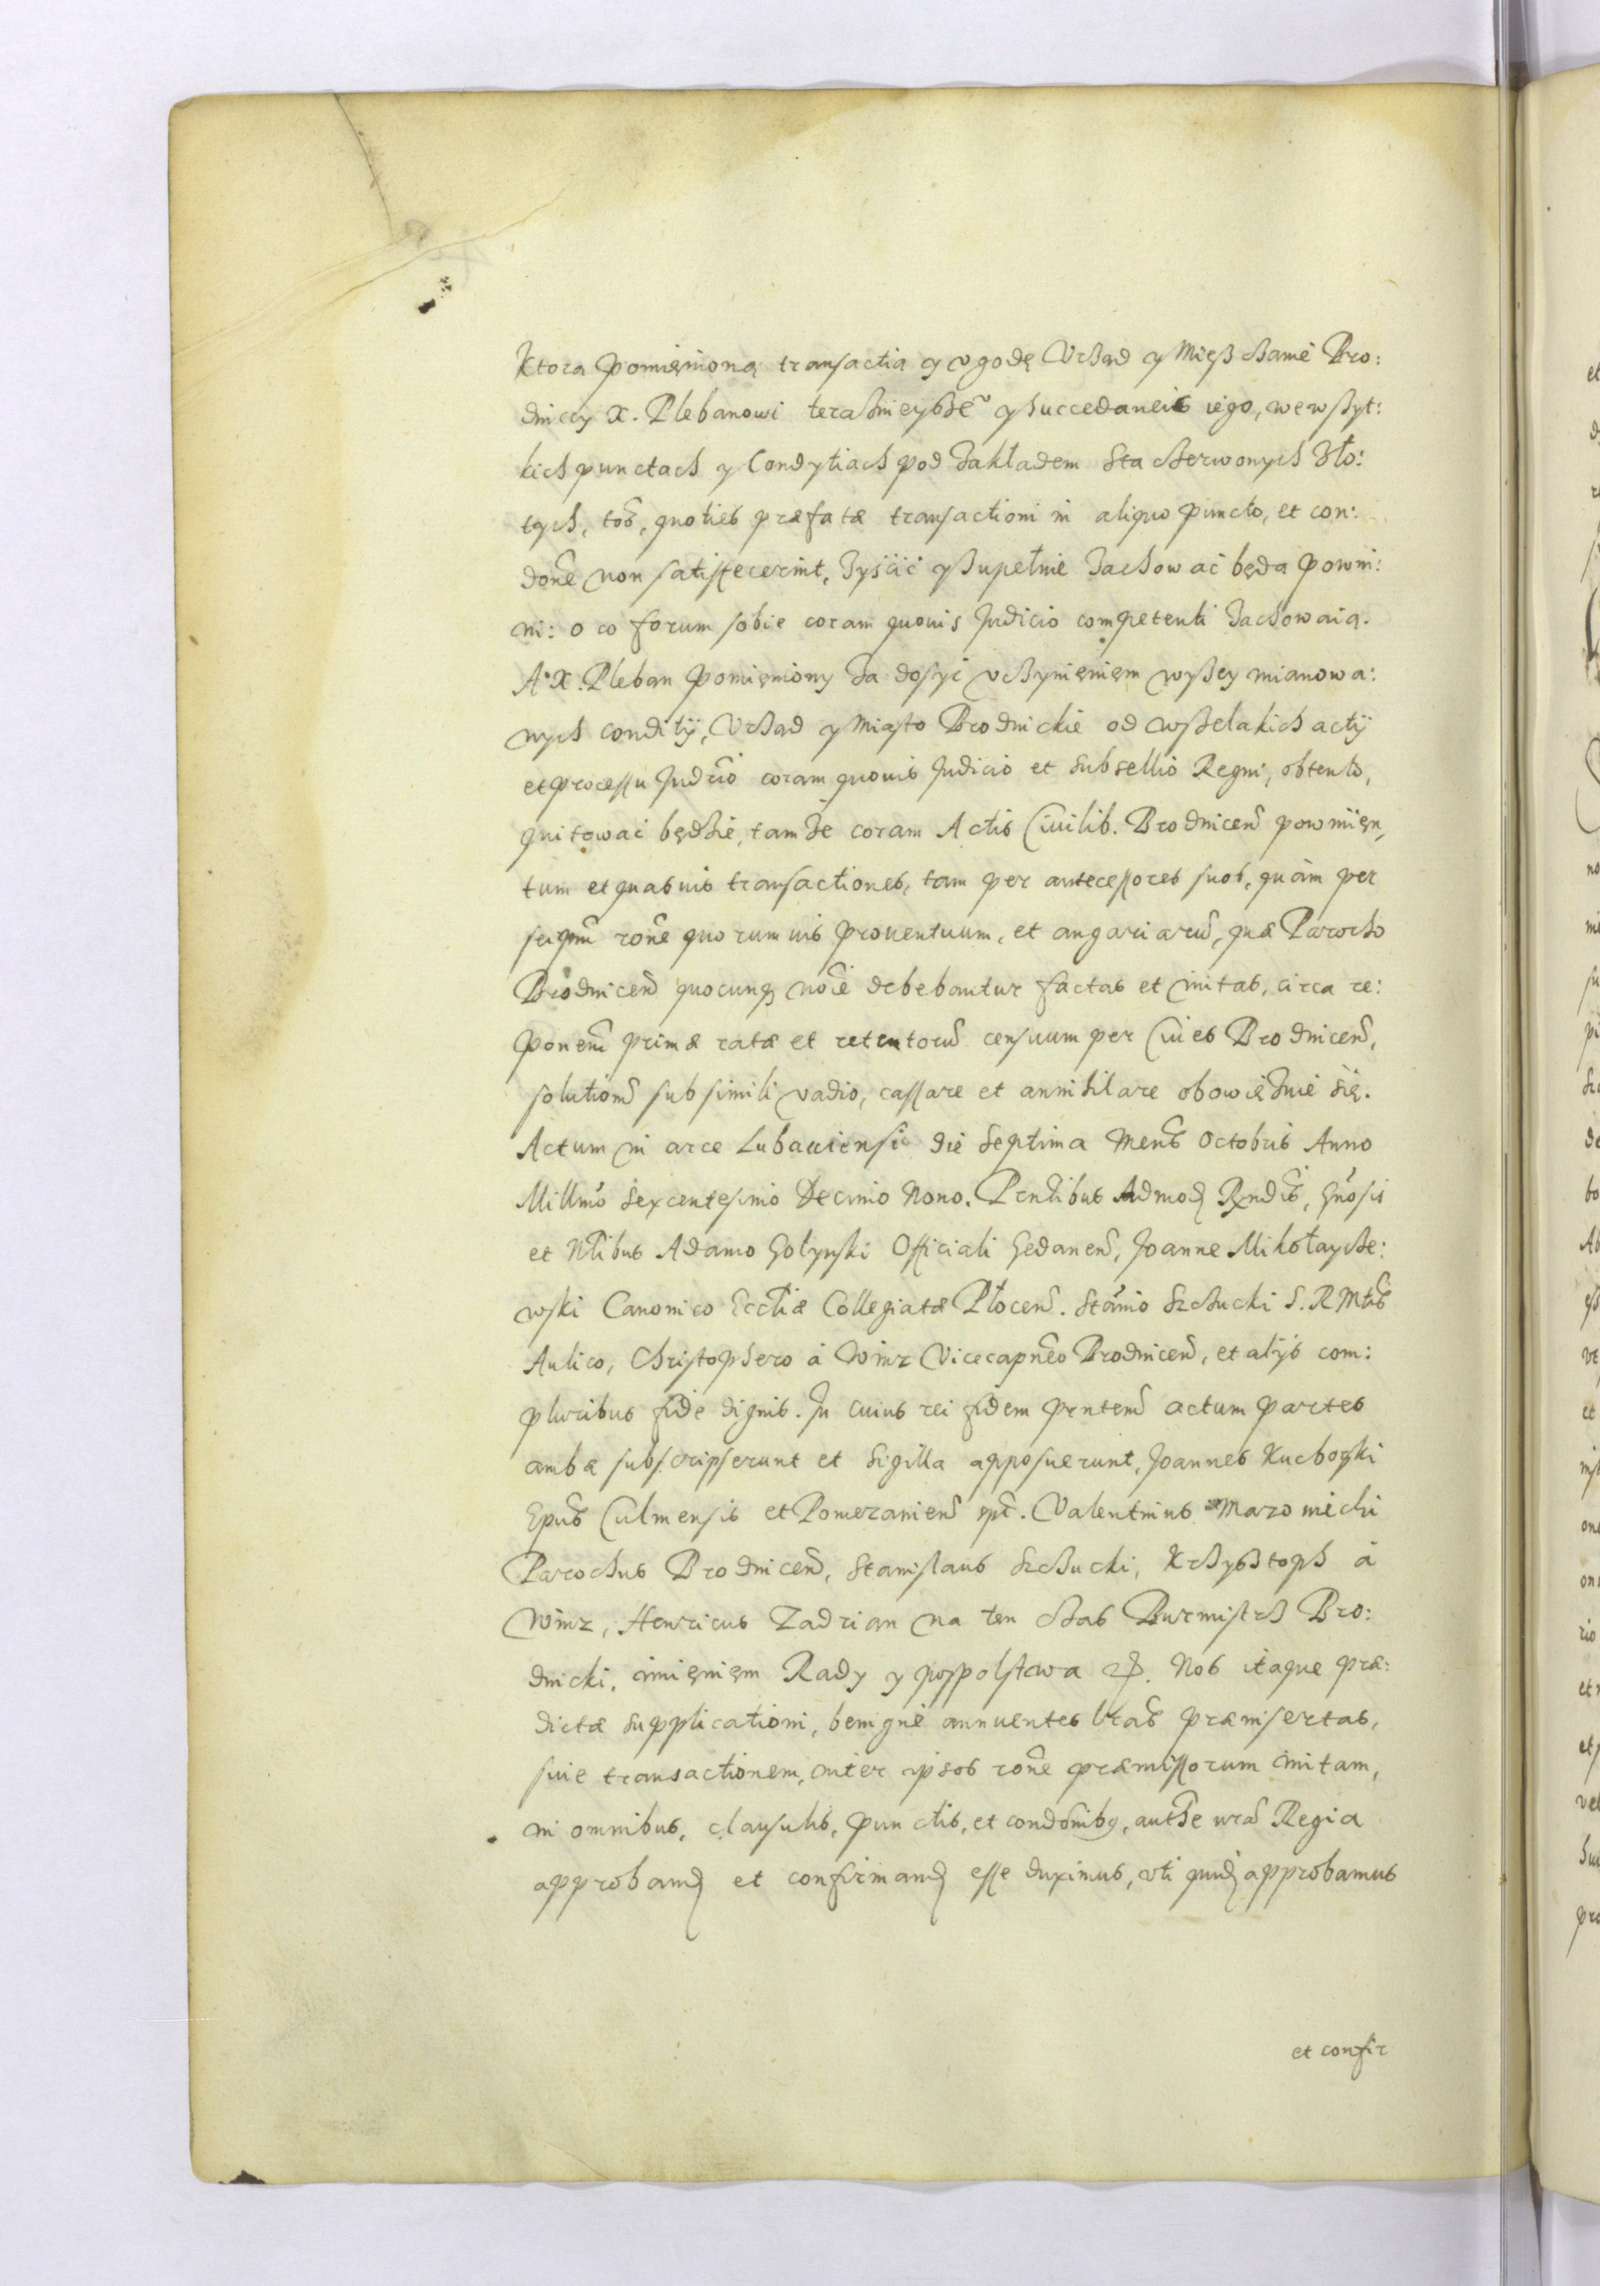 Ktora pomięnioną transactia y vgodę Vrząd y Mięszczanie Bro:
dniccy X. Plebanowi teraznieyszeº y Succedaneis iego, wewszyt:
kich punctach y Condytiach pod Zakładem Sta Czerwonych Zło:
tych, toē, quoties præfatæ transactioni in aliquo puncto, et con:
dōne non satisfecerint, Zyścić y Zupełnie Zachować będa powin:
ni: o co forum sobie coram quouis Judicio competenti Zachowaią.
A X. Pleban pomięniony Za dosyć vczynięnięm wyszey mianowa:
nych conditÿ, Vrząd y Miasto Brodnickie od wszelakich actÿ
et processu Judrio coram quouis Judicio et Subsellio Regni, obtento,
quitować będzie, tamże coram Actis Ciuilib. Brodnicen powinięn,
tum et quasuis transactiones, tam per antecessores suos, quàm per
seipsum rōne quorumuis prouentuum, et angariarū, quæ Parocho
Brodnicen quocunq nōie debebantur factas et initas, circa re:
ponem primæ ratæ et retentorū censuum per Ciues Brodnicen,
solutionē sub simili vadio, cassare et annihilare obowięzuie się.
Actum in arce Lubauiensi die Septima Mens Octobris Anno
Millmo Sexcentesimo Decimo Nono. Pntibus Admod Rndis, Gnosis
et Nlibus Adamo Gołynski Officiali Gedanen, Joanne Mikołaycze:
wski Canonico Eccliæ Collegiatæ Płocen. Stanio Szczucki S. R Mtis
Aulico, Christophero à Winz Vicecapneo Brodnicen, et alÿs com:
pluribus fide dignis. In cuius rei fidem pntem actum partes
ambæ subscripserunt et Sigilla apposuerunt, Joannes Kuchorski
Epus Culmensis et Pomeranien mp. Valentinus Mazowiecki
Parochus Brodnicen, Stanislaus Szczucki, Krzysztoph à
Winz, Henricus Zadrian na ten czas Burmistrz Bro:
dnicki, imięnięm Rady y pospolstwa mp. Nos itaque præ:
dictæ supplicationi, benignè annuentes lras præinsertas,
siue transactionem, inter ipsos rōne præmissorum initam,
in omnibus, clausulis, punctis, et condonibq, authe nra Regia
approband et confirmand esse duximus, vti quid approbamus
et confir